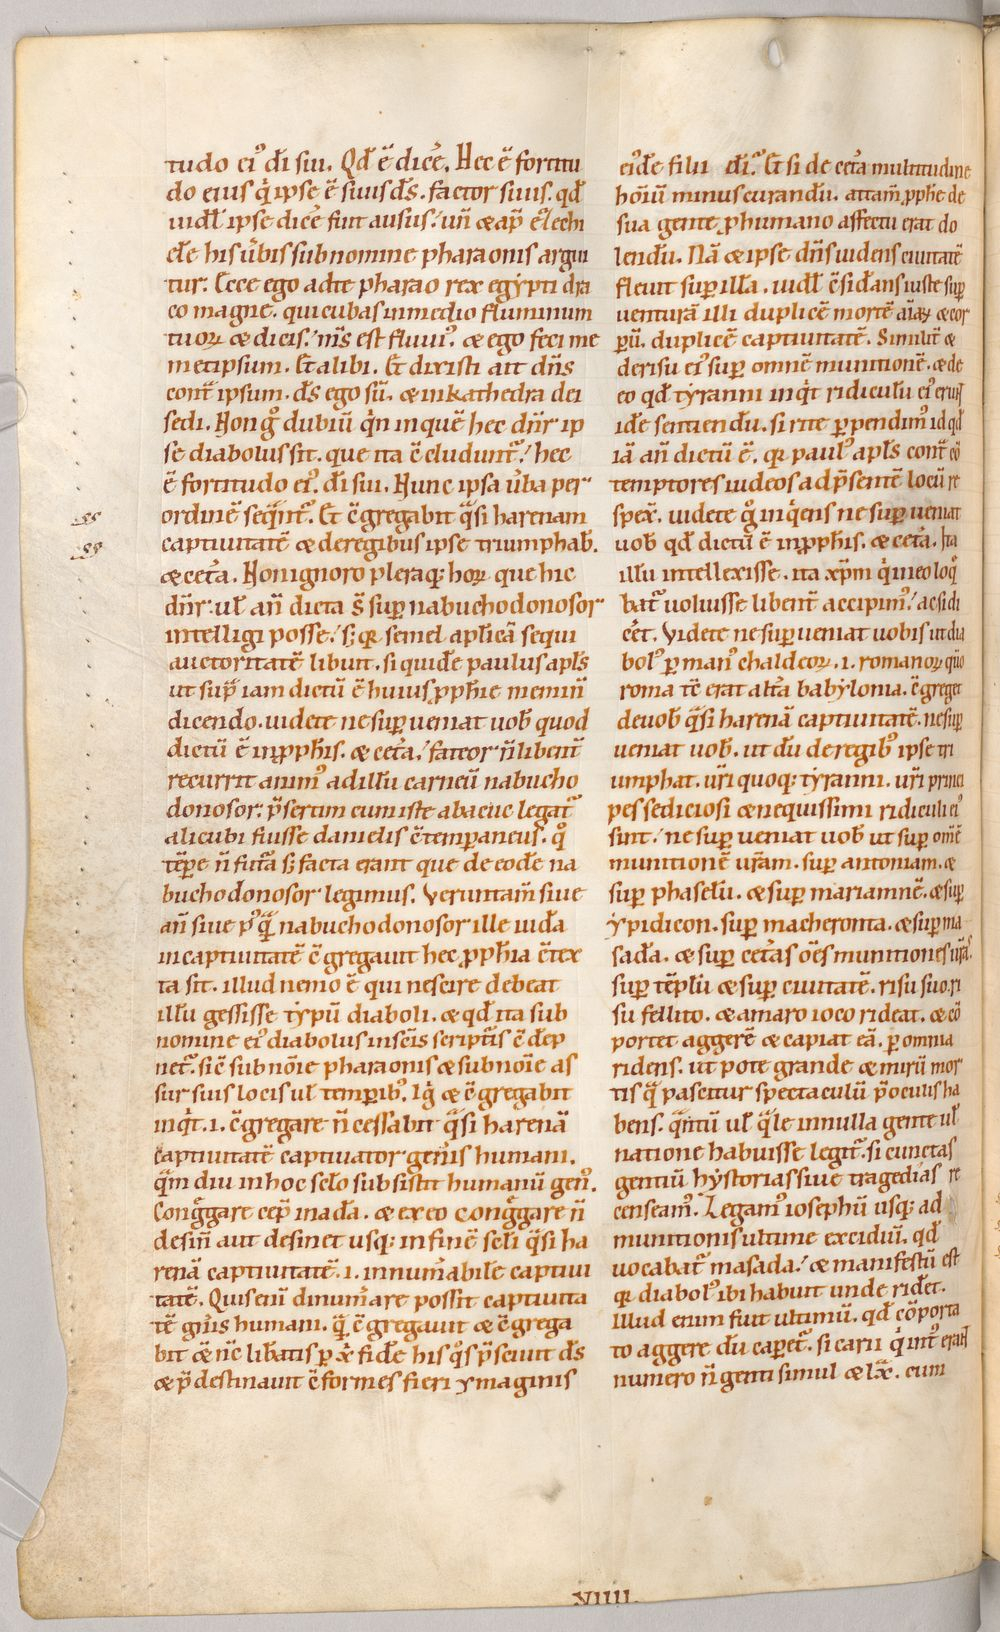 tudo ei᾿ di sui. Qd ē dicē. Hec ē fortitu
do eius q̇ ipse ē suus ds̄. factor suus. qd
uidl᾿ ipse dicē fuit ausus. un̄ ⁊ ap̄ eꝰechi
ele his ūbis sub nomine pharaonis argui
tur. Ecce ego ad te pharao rex egypti dra
co magne. qui cubas in medio fluminum
tuoꝝ ⁊ dicis. ms̄ est fluuiꝰ. ⁊ ego feci me
metipsum. Et alibi. Et dixisti ait dn̄s
cont̄ ipsum. ds̄ ego sū. ⁊ in kathedra dei
sedi. Non gͦ dubiū qͥn in quē hec dn̄r ip
se diabolus sit. que ita ē cludunt᷑. hec
ē fortitudo eiꝰ. di sui. Nunc ipsa ūba per
ordinē seqͣnt᷑. Et c̄gregabit qͣsi harenam
captiuitatē ⁊ de regibus ipse triumphab̄.
⁊ cet̄a. Non ignoro pleraqꝫ hoꝝ que hic
dn̄r. ul᾿ an̄ dicta s̄ sup nabuchodonosor
intelligi posse. sꝫ qꝛ semel aplicā sequi
auctoritatē libuit. si quidē paulus apls̄
ut supͣ iam dictū ē huius ꝓphie meminī
dicendo. uidete ne sup ueniat uob̄ quod
dictū ē in ꝓphis. ⁊ cet̄a. fateor n̄ libent̄
recurrit animꝰ ad illū carneū nabucho
donosor. p̄sertim cum iste abacuc legat᷑
alicubi fuisse danielis c̄temporaneus. qͦ
tēpore n̄ futͣa sꝫ facta erant que de eodē na
buchodonosor legimus. Veruntam̄ siue
an̄ siue pꝰqͣ nabuchodonosor ille iuda
in captiuitatē c̄gregauit hec ꝓphia c̄tex
ta sit. illud nemo ē qui nescire debeat
illū gessisse typū diaboli. ⁊ qd ita sub
nomine eiꝰ diabolus in scis scriptis c̄dep
net᷑. sic̄ sub noīe pharaonis ⁊ sub noīe as
sur suis locis ul᾿ temporibꝰ. Igͥ ⁊ c̄gregabit
inqͥt. i. c̄gregare n̄ cessabit qͣsi harenā
captiuitatē captiuator gen̄is humani.
qͣmdiu in hoc sclo subsistit humanū genꝰ.
Congͥgare cep̄ in ada. ⁊ ex eo congͥgare n̄
desin̄ aut desinet usqꝫ in finē scli qͣsi ha
renā captiuitatē. i. innum̄abilē captiui
tatē. Quis enī dinum̄are possit captiuita
tē gn̄is humani. qͣ c̄gregauit ⁊ c̄grega
bit ⁊ nc̄ lib̄atis p xͥ fidē his qͦs p̄sciuit ds̄
⁊ p̄destinauit c̄formes fieri ymaginis
eiꝰdē filii di᷑. Et si de cet̄a multitudine
hoīū minus curandū. attam̄ ꝓphe de
sua gente ꝓ humano affectu erat do
lendū. Nā ⁊ ipse dn̄s uidens ciuitatē
fleuit sup illā. uidl᾿ c̄sid̄ans iuste sup
uenturā illi duplicē mortē aīaꝝ ⁊ cor
pū. duplicē captiuitatē. Similit̄ ⁊
derisu eiꝰ sup omnē munitionē. ⁊ de
eo qd tyranni inqͥt ridiculū eiꝰ erunt
idē sentiendū. si rite ppendimꝰ id qd
iā an̄ dictū ē. qꝛ paulꝰ apls̄ cont̄ cō
temptores iudeos ad p̄sentē locū re
spex̄. uidete gͦ inqͥens ne sup ueniat
uob̄ qd dictū ē in ꝓphis. ⁊ cet̄a. Ita
illū intellexisse. ita xp̄m qͥ in eo loqͥ
bat᷑ uoluisse libent̄ accipimꝰ. ac si di
cēt. Videte ne sup ueniat uobis ut dia
bolꝰ p manꝰ chaldeoꝝ. i. romanoꝝ qm̄
roma tē erat alt̄a babylonia. c̄greget
de uob̄ qͣsi harenā captiuitatē. ne sup
ueniat uob̄. ut dū de regibꝰ ipse tri
umphat. ur̄i quoqꝫ tyranni. ur̄i princi
pes sediciosi ⁊ nequissimi ridiculi eiꝰ
sint. ne sup ueniat uob̄ ut sup omē
munitionē ur̄am. sup antoniam. ⁊
sup phaselū. ⁊ sup mariamnē. ⁊ sup
ypidicon. sup macheronta. ⁊ sup ma
sada. ⁊ sup cet̄as oēs munitiones ur̄as.
sup tēplū ⁊ sup ciuitatē. risu suo. ri
su fellito. ⁊ amaro ioco rideat. ⁊ cō
portet aggerē ⁊ capiat eā. p omnia
ridens. ut pote grande ⁊ mirū mor
tis qͣ pascitur spectaculū p̄ oculis ha
bens. qͣntū ul᾿ qͣle in nulla gente ul᾿
natione habuisse legit᷑. si cunctas
gentiū hystorias siue tragedias re
censeamꝰ. Legamꝰ iosephū usqꝫ ad
munitionis ultime excidiū. qd
uocabat᷑ masada. ⁊ manifestū est
qꝛ diabolꝰ ibi habuit unde ridet.
Illud enim fuit ultimū. qd cōporta
to aggere dū capet᷑. sicarii qͥ intꝰ erant
numero n̄genti simul ⁊ lxͣ. cum
XIIII.